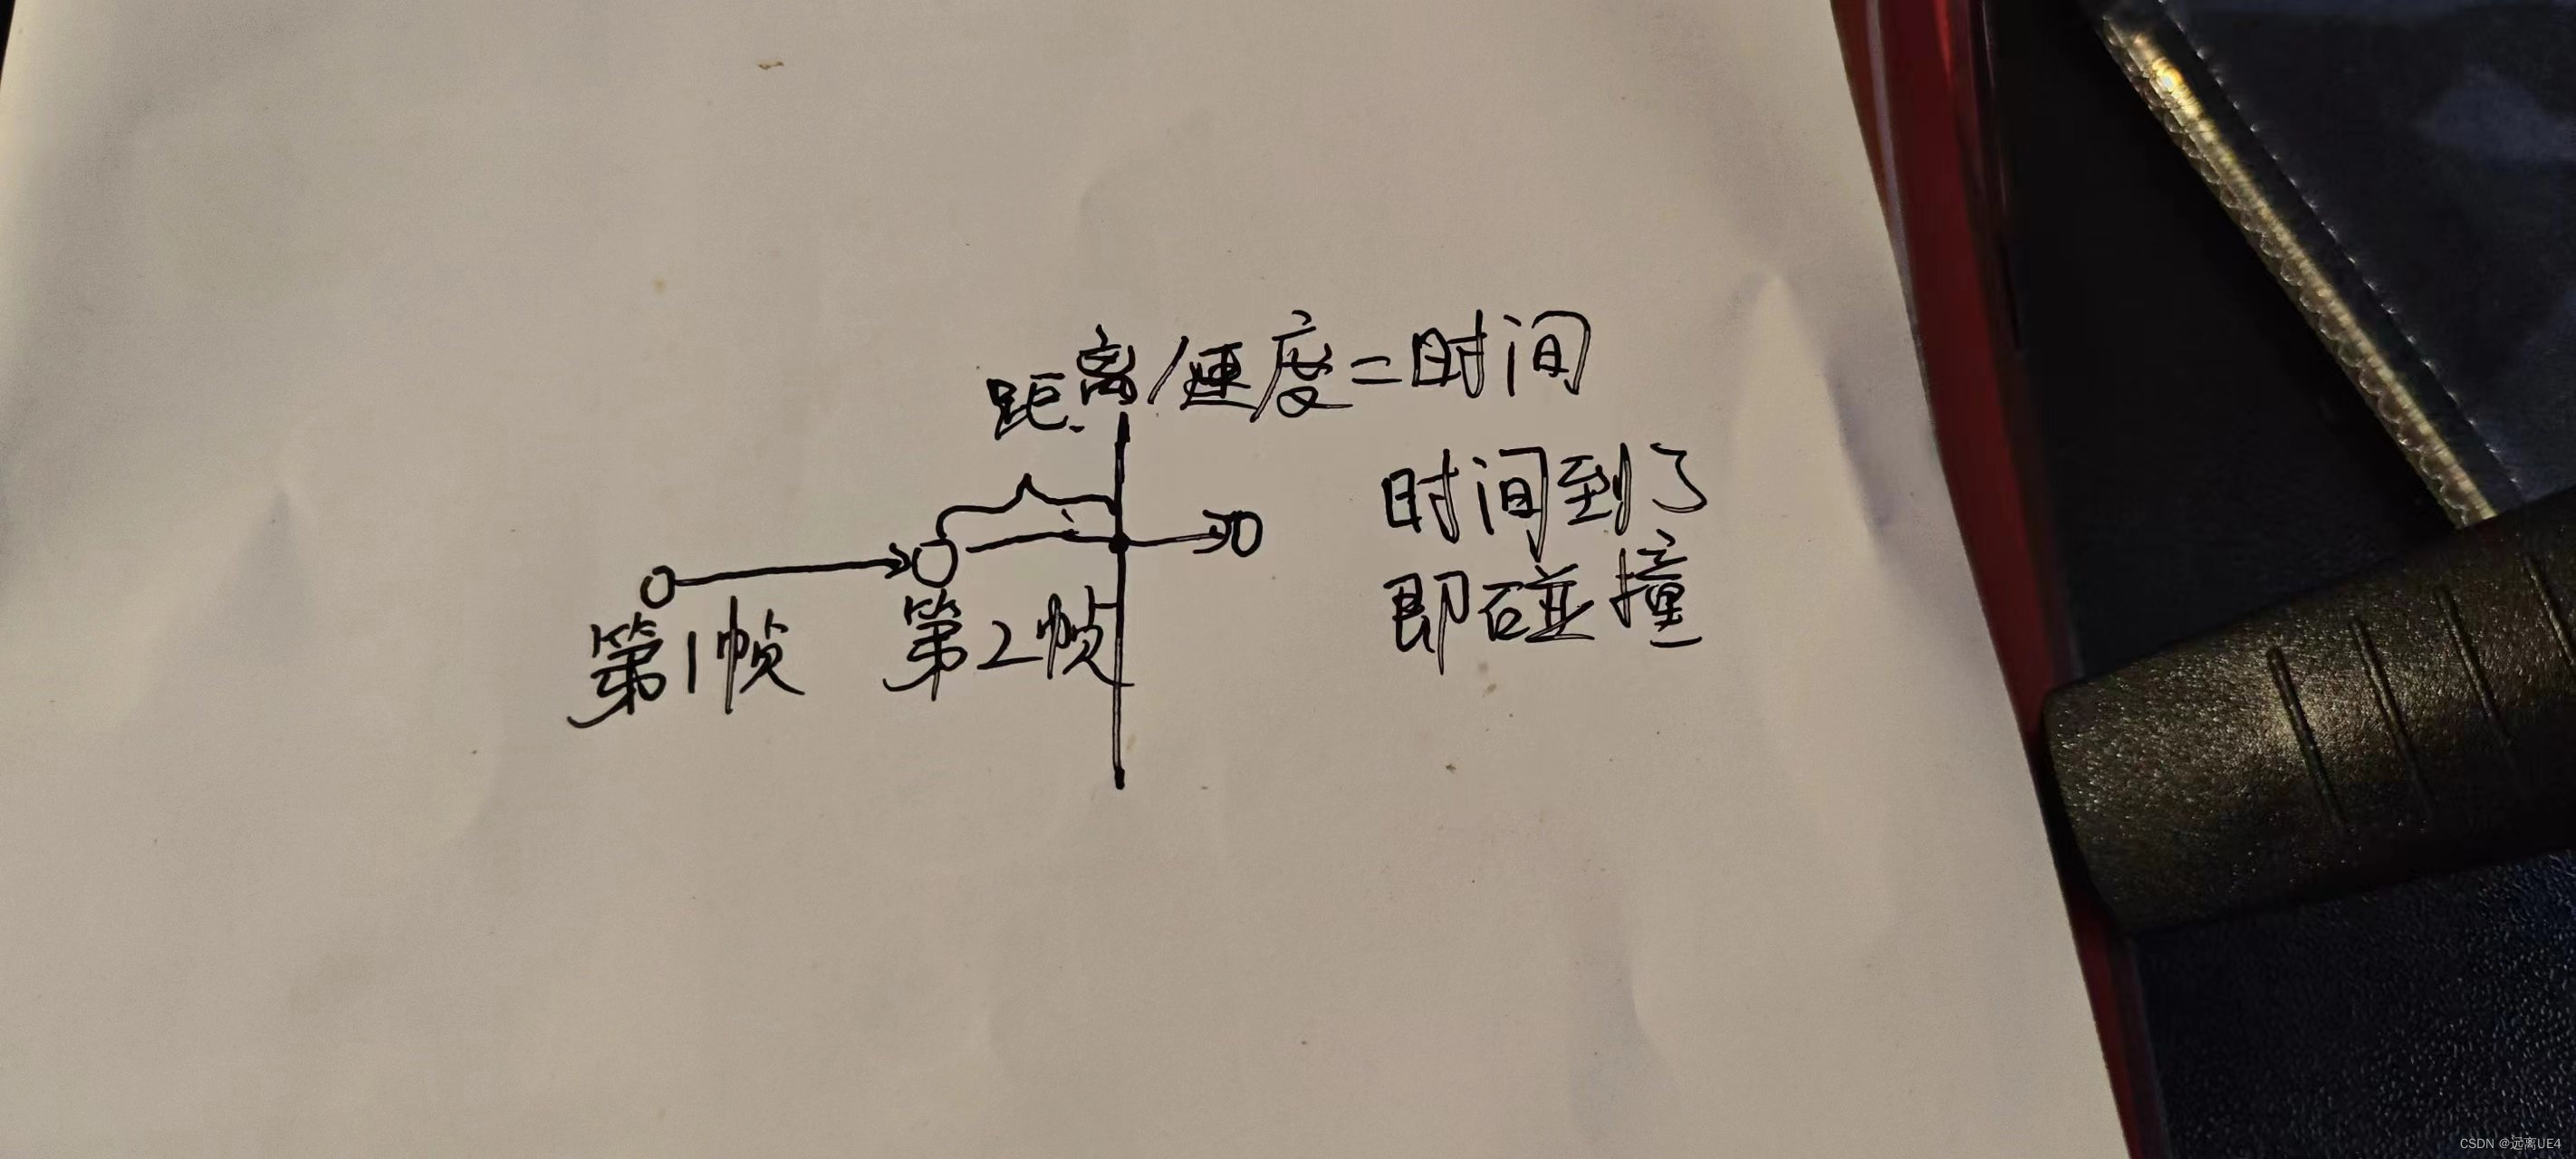 距离/速度=时间
时间到了
即碰撞
第1帧
第2帧
CSDN @远离UE4